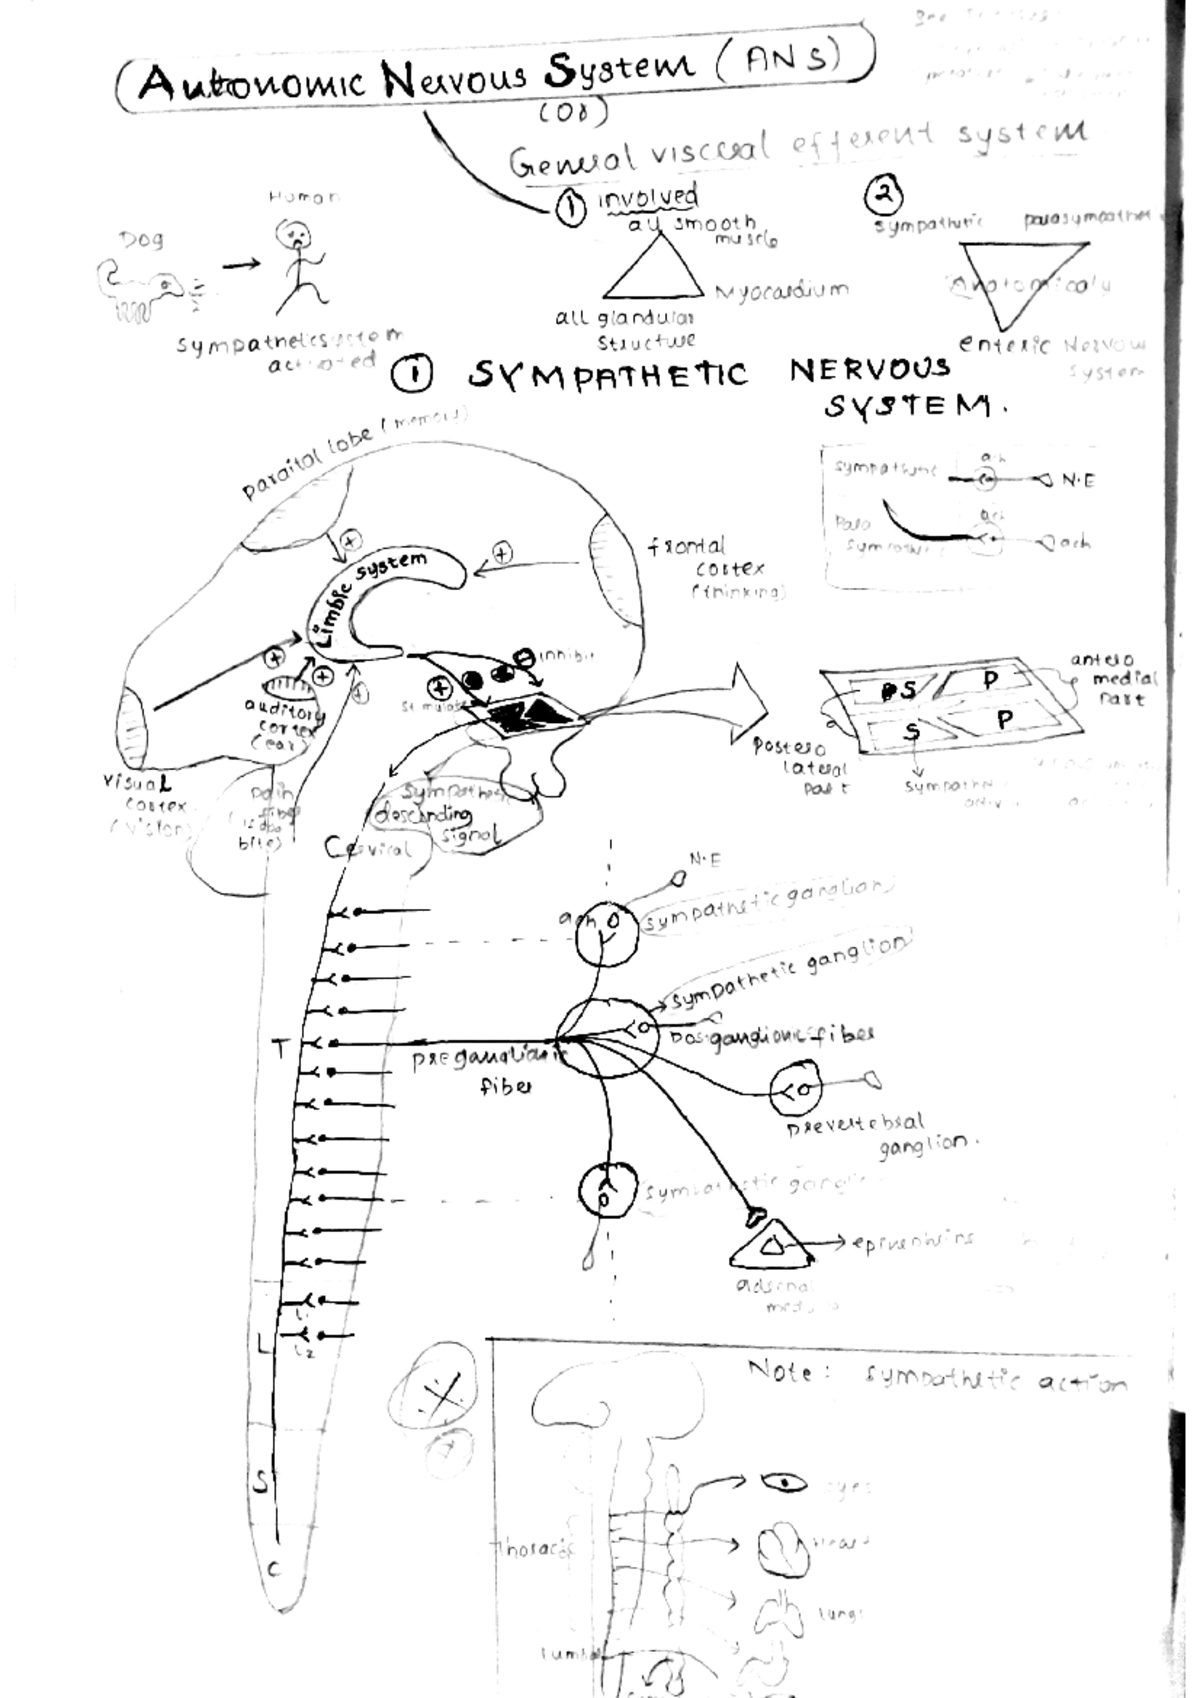 Autonomic Nervous System (ANS)
(Or)
General visceral efferent system
Human
Dog
sympathetic system
activated
① involved
all smooth
muscle
Myocardium
all glandular
structure
②
sympathetic
Anatomicaly
enteric Nervous
System
① SYMPATHETIC NERVOUS
SYSTEM.
paraital lobe (memory)
Limbic system
frontal
cortex
(thinking)
sympathetic
ach
N.E
Para
Sympathetic
ach
ach
inhibit
Stimulate
auditory
cortex
(ear)
visual
cortex
(vision)
Pain
fiber
bite)
sympathetic
descending
signal
Cervical
PS
P
S
P
antero
medial
Part
Postero
lateral
Part
N.E
ach
sympathetic ganglion
sympathetic ganglion
posganglionic fiber
T
preganglionic
fiber
prevertebral
ganglion.
sympathetic
adrenal
L
L1
L2
S
C
Note: sympathetic action
eyes
thoracic
Heart
lungs